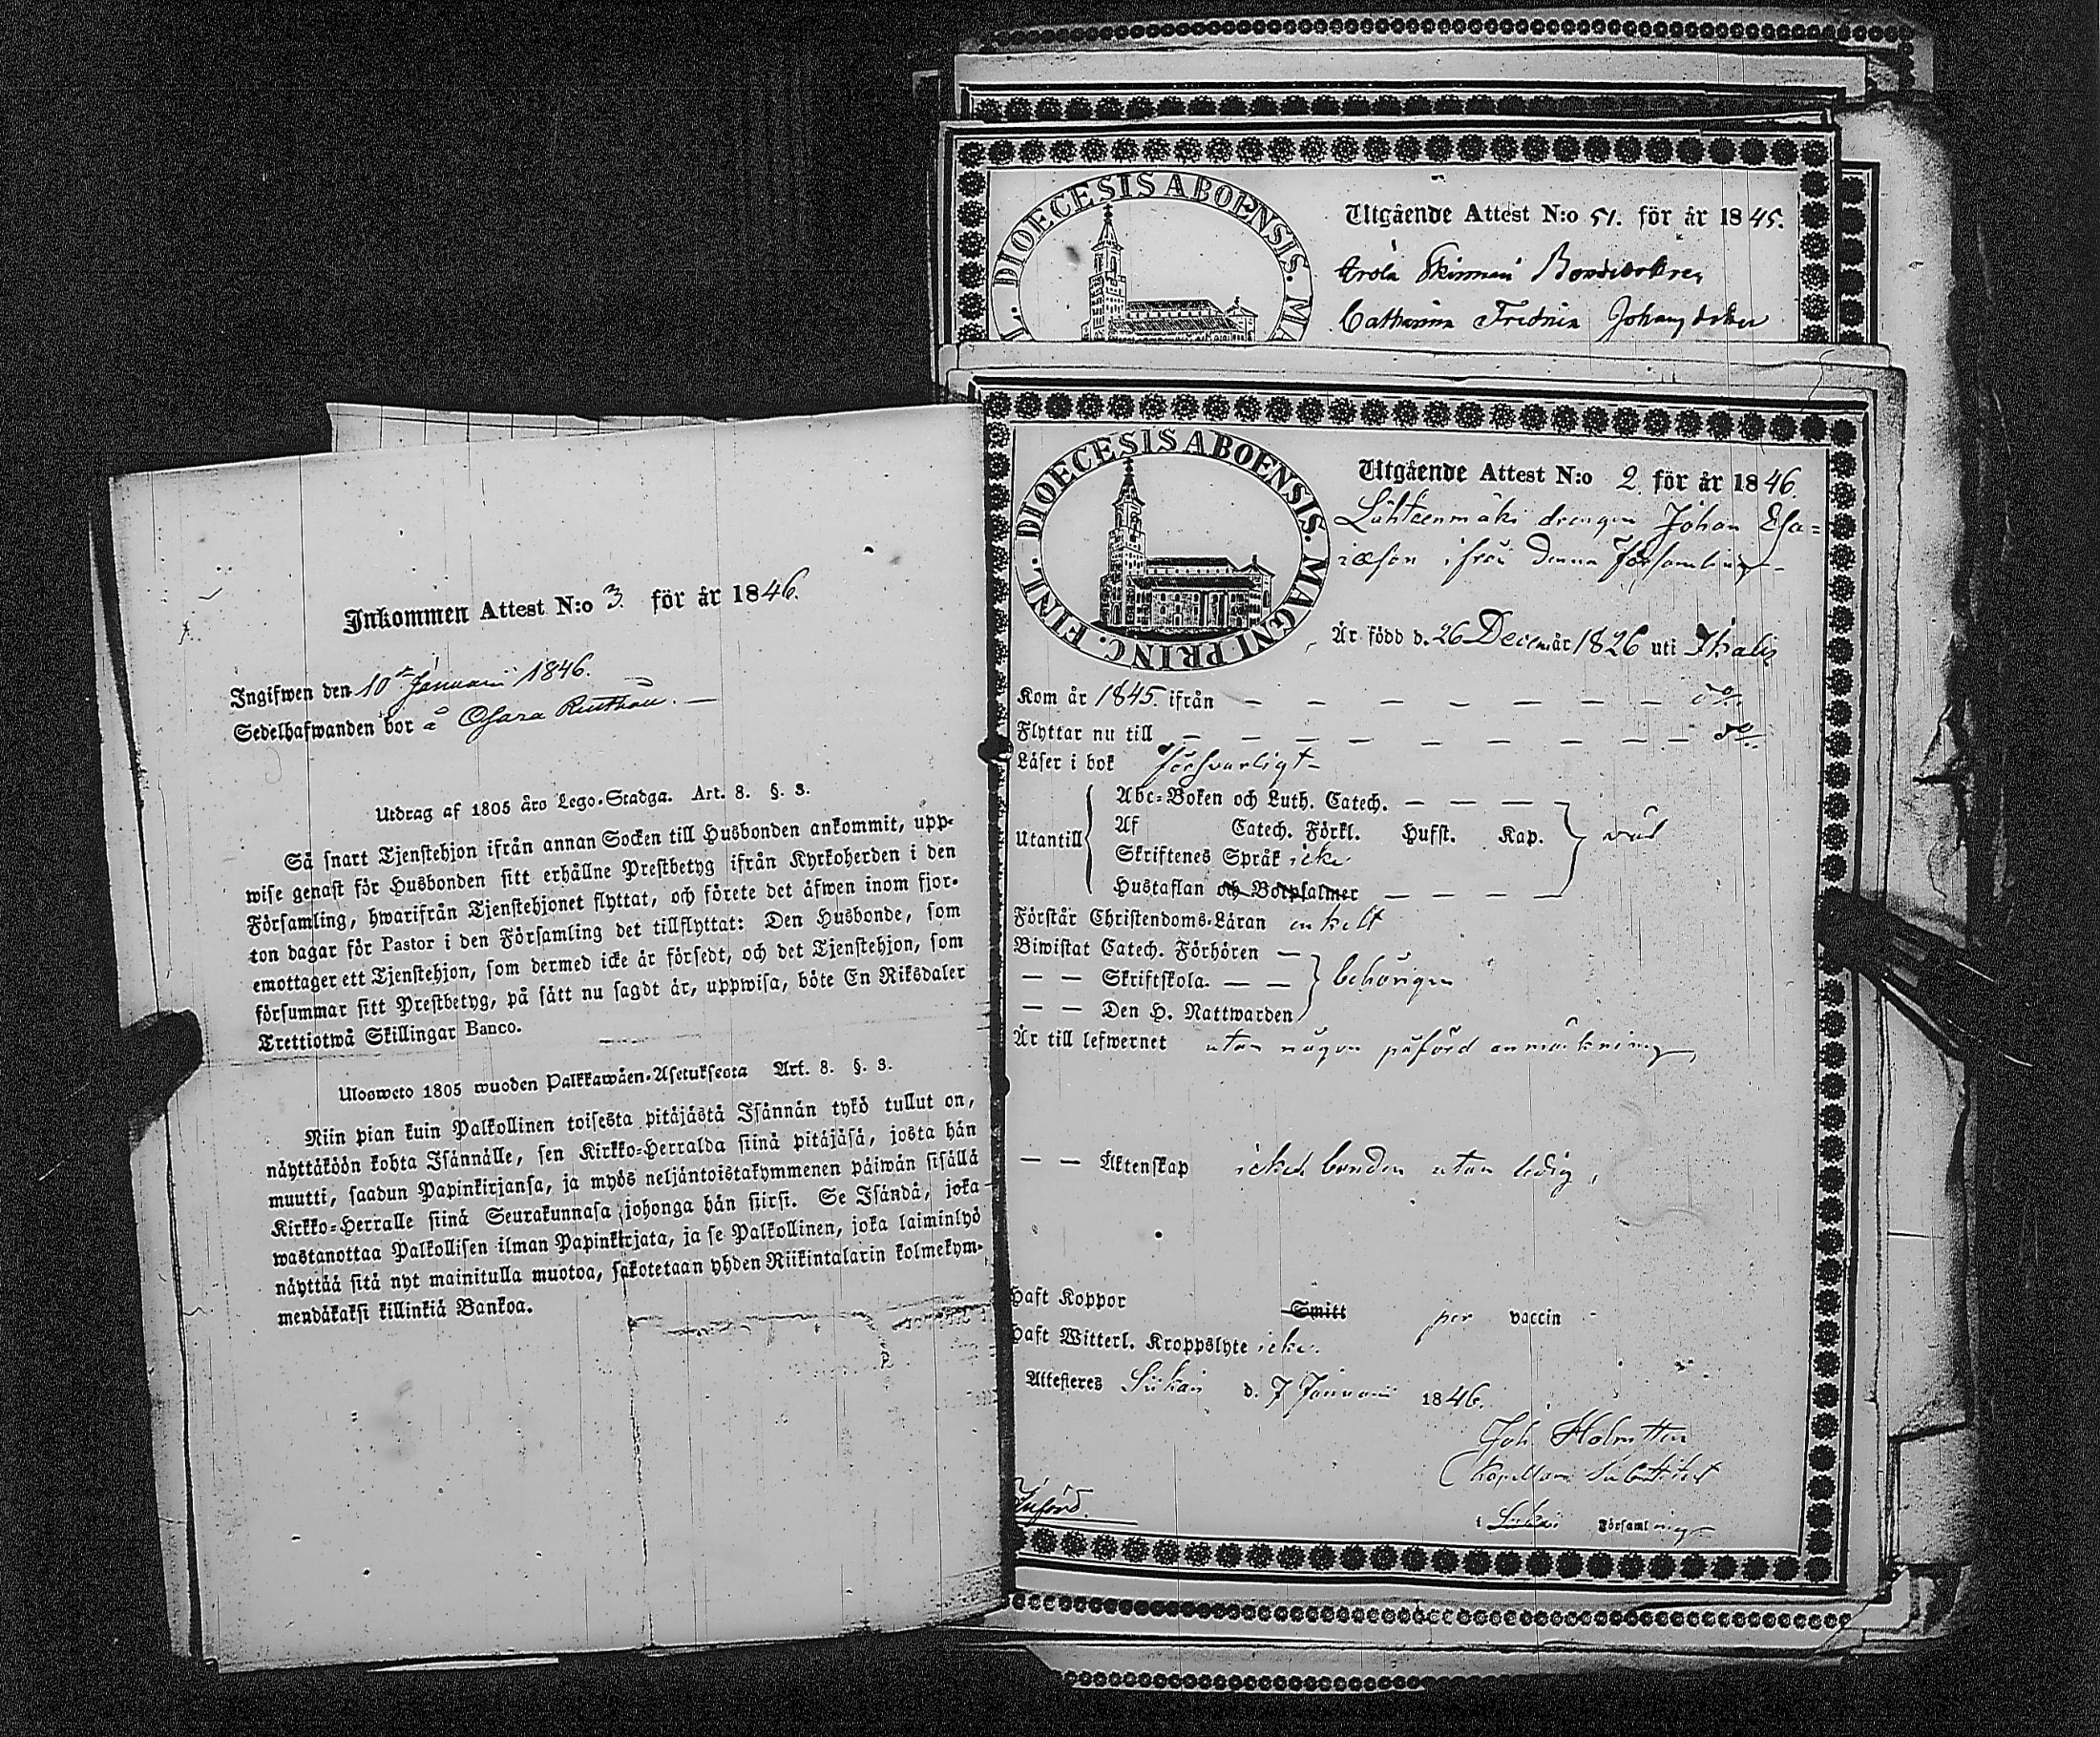 DIOECESIS ABOENSIS. MA
Utgående Attest N:o 51. för år 1845.
Catharina Johansdotter
Inkommen Attest N:o 3. för år 1846.
Ingifwen den 10de Januarii 1846.
Sedelhafwanden bor å
Utdrag af 1805 års Lego-Stadga. Art. 8. §. 3.
Så snart Tjenstehjon ifrån annan Socken till Husbonden ankommit, upp-
wise genast för Husbonden sitt erhållne Prestbetyg ifrån Kyrkoherden i den
Församling, hwarifrån Tjenstehjonet flyttat, och förete det äfwen inom fjor-
ton dagar för Pastor i den Församling det tillflyttat: Den Husbonde, som
emottager ett Tjenstehjon, som dermed icke är försedt, och det Tjenstehjon, som
försummar sitt Prestbetyg, på sätt nu sagdt är, uppwisa, böte En Riksdaler
Trettiotwå Skillingar Banco.
Ulosweto 1805 wuoden Palkkawäen-Asetuksesta Art. 8. §. 3.
Niin pian kuin Palkollinen toisesta pitäjästä Isännän tykö tullut on,
näyttäköön kohta Isännälle, sen Kirkko-Herralda siinä pitäjäsä, josta hän
muutti, saadun Papinkirjansa, ja myös neljäntoistakymmenen päiwän sisällä
Kirkko-Herralle siinä Seurakunnasa johonga hän siirsi. Se Isändä, joka
wastanottaa Palkollisen ilman Papinkirjata, ja se Palkollinen, joka laiminlyö
näyttää sitä nyt mainitulla muotoa, sakotetaan yhden Riikintalarin kolmekym-
mendäkaksi killinkiä Bankoa.
DIOECESIS ABOENSIS. MAGNI PRINC. FINL.
Utgående Attest N:o 2. för år 1846.
Lähteenmäki drengen Johan Esa=
iæson ifrån denna Församling
Är född d. 26 Decem år 1826 uti Ikalis
Kom år 1845. ifrån — — — — — — — do.
Flyttar nu till — — — — — — — — — do.
Läser i bok försvarligt
Utantill
Abc-Boken och Luth. Catech. — — —
Af Catech. Förkl. Husst. Kap.
Skriftenes Språk icke.
Hustaflan och Botpsalmer — — — —
Förstår Christendoms-Läran enkelt
Biwistat Catech. Förhören —
— — Skriftskola. — — behörigen
— — Den H. Nattwarden
Är till lefwernet utan någon påförd anmärkning,
— — Äktenskap icke bunden utan ledig,
Haft Koppor Smitt per vaccin
Haft Witterl. Kroppslyte icke.
Attesteres d. 7 Januarii 1846.
Joh. Holmsten
Kapellans Substitut
i Församling
Införd.